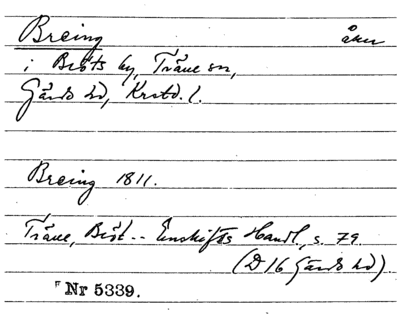 Breing åker
i Bröts by, Träne sn,
Gärds hd, Krstd. l.
Breing 1811.
Träne, Bröt -- Enskiftes Handl., s. 79
(D 16 Gärds hd).
Nr 5339.